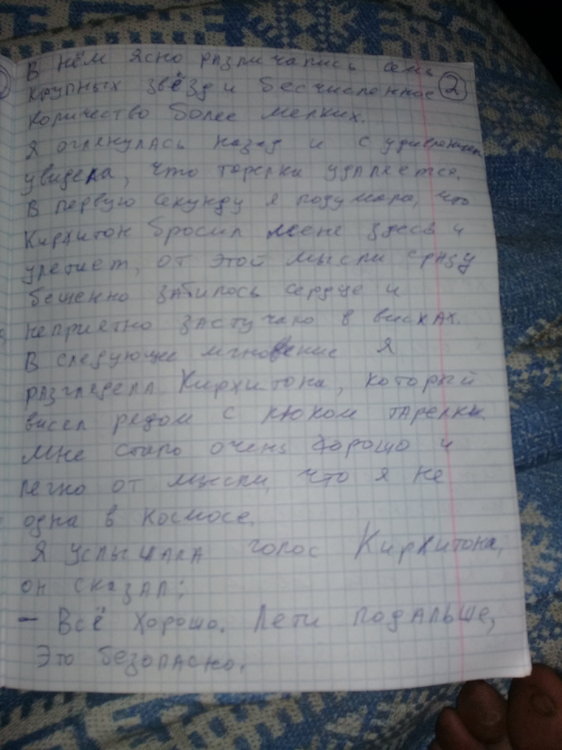 В нём ясно различались семь
крупных звёзд и бесчисленное 2
количество более мелких.
Я оглянулась назад и с удивлением
увидела, что тарелка удаляется.
В первую секунду я подумала, что
Кирхитон бросил мене здесь и
улетает, от этой мысли сразу
бешенно забилось сердце и
неприятно застучало в висках.
В следующее мгновение я
разглядела Кирхитона, который
висел рядом с люком тарелки.
Мне стало очень хорошо и
легко от мысли, что я не
одна в космосе.
Я услышала голос Кирхитона,
он сказал:
- Всё хорошо. Лети подальше,
это безопасно.